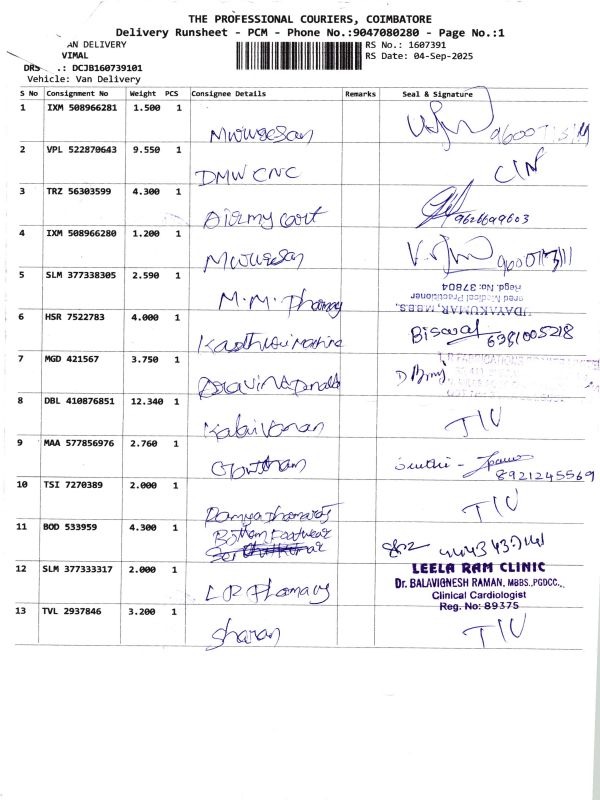 THE PROFESSIONAL COURIERS, COIMBATORE
Delivery Runsheet - PCM - Phone No.:9047080280 - Page No.:1
AN DELIVERY
RS No.: 1607391
VIMAL
RS Date: 04-Sep-2025
DRS .: DCJB160739101
Vehicle: Van Delivery
S No Consignment No Weight PCS Consignee Details Remarks Seal & Signature
1 IXM 508966281 1.500 1
Murugesan
2 VPL 522870643 9.550 1
DMW CNC
3 TRZ 56303599 4.300 1
9626699603
4 IXM 508966280 1.200 1
Murugesan
5 SLM 377338305 2.590 1
M.M. Pharmacy
UDAYAKUMAR, MBBS.,
ered Medical Practitioner
Regd. No: 37804
6 HSR 7522783 4.000 1
6381005218
7 MGD 421567 3.750 1
8 DBL 410876851 12.340 1
Kalaivanan
9 MAA 577856976 2.760 1
Gowtham
8921245569
10 TSI 7270389 2.000 1
11 BOD 533959 4.300 1
Footwear
12 SLM 377333317 2.000 1
LR Pharmacy
LEELA RAM CLINIC
Dr. BALAVIGNESH RAMAN, MBBS.,PGDCC.,
Clinical Cardiologist
Reg. No: 89375
13 TVL 2937846 3.200 1
Sharan